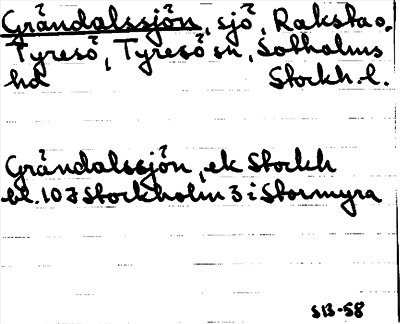 Gråndalssjön, sjö, Raksta o.
Tyresö, Tyresö sn, Sotholms
hd Stockh. l.
Gråndalssjön, ek Stockh
bl. 107 Stockholm 3 i Stormyra
SB-58